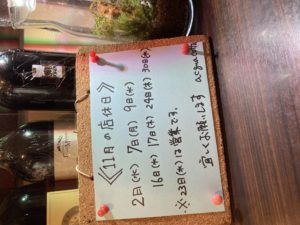 《11月の店休日》
2日(水) 7日(月) 9日(水)
16日(水) 17日(木) 24日(木) 30日(水)
※23日(水)は営業です。
宜しくお願いします